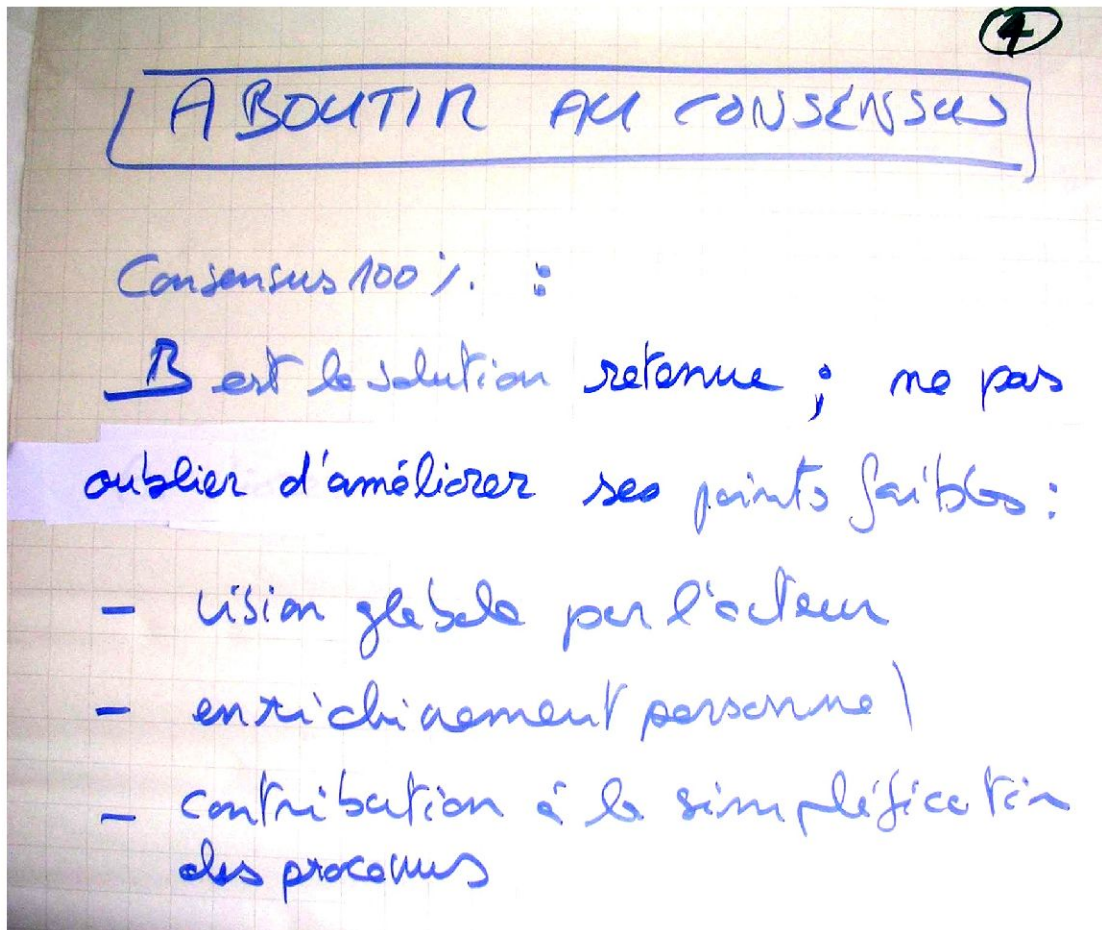 4
ABOUTIR AU CONSENSUS
Consensus 100% :
B est la solution retenue ; ne pas
oublier d'améliorer ses points faibles :
- vision globale par l'acteur
- enrichissement personnel
- contribution à la simplification
des processus